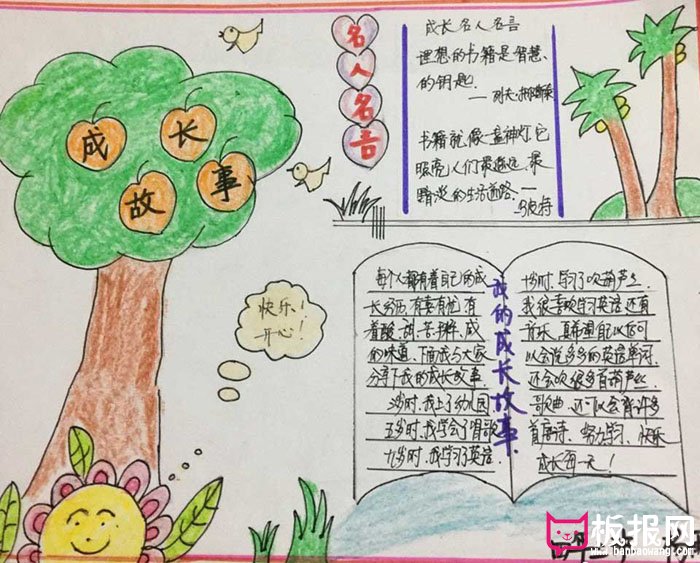 成长
故事
名人名言
成长名人名言
理想的书籍是智慧
的钥匙
书籍就像一盏神灯,它
照亮人们最遥远、最
暗淡的生活道路.—
快乐!
开心!
我的成长故事
每个人都有着自己的成
长经历,有喜有悲,有
着酸、甜、苦、辣、咸
的味道、下面我与大家
分享下我的成长故事
岁时,我上了幼儿园
五岁时,我学会了唱歌
九岁时,我学习了英语
十岁时,学习了吹葫芦丝
我很喜欢学习英语还有
音乐,真希望自己以后可
以会说多多的英语单词,
还会吹很多首葫芦丝
歌曲,还可以会背许多
首唐诗、努力学习、快乐
成长每一天!
板报网
www.banbaowang.com